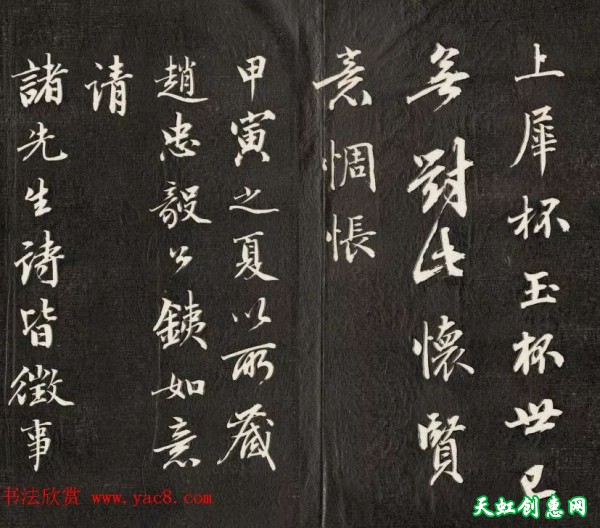 上犀杯玉杯世已
無對此懷賢
意惆悵
甲寅之夏以所藏
趙忠毅公鐵如意
请
諸先生詩皆徵事
书法欣赏 www.yac8.com
天虹创惠网